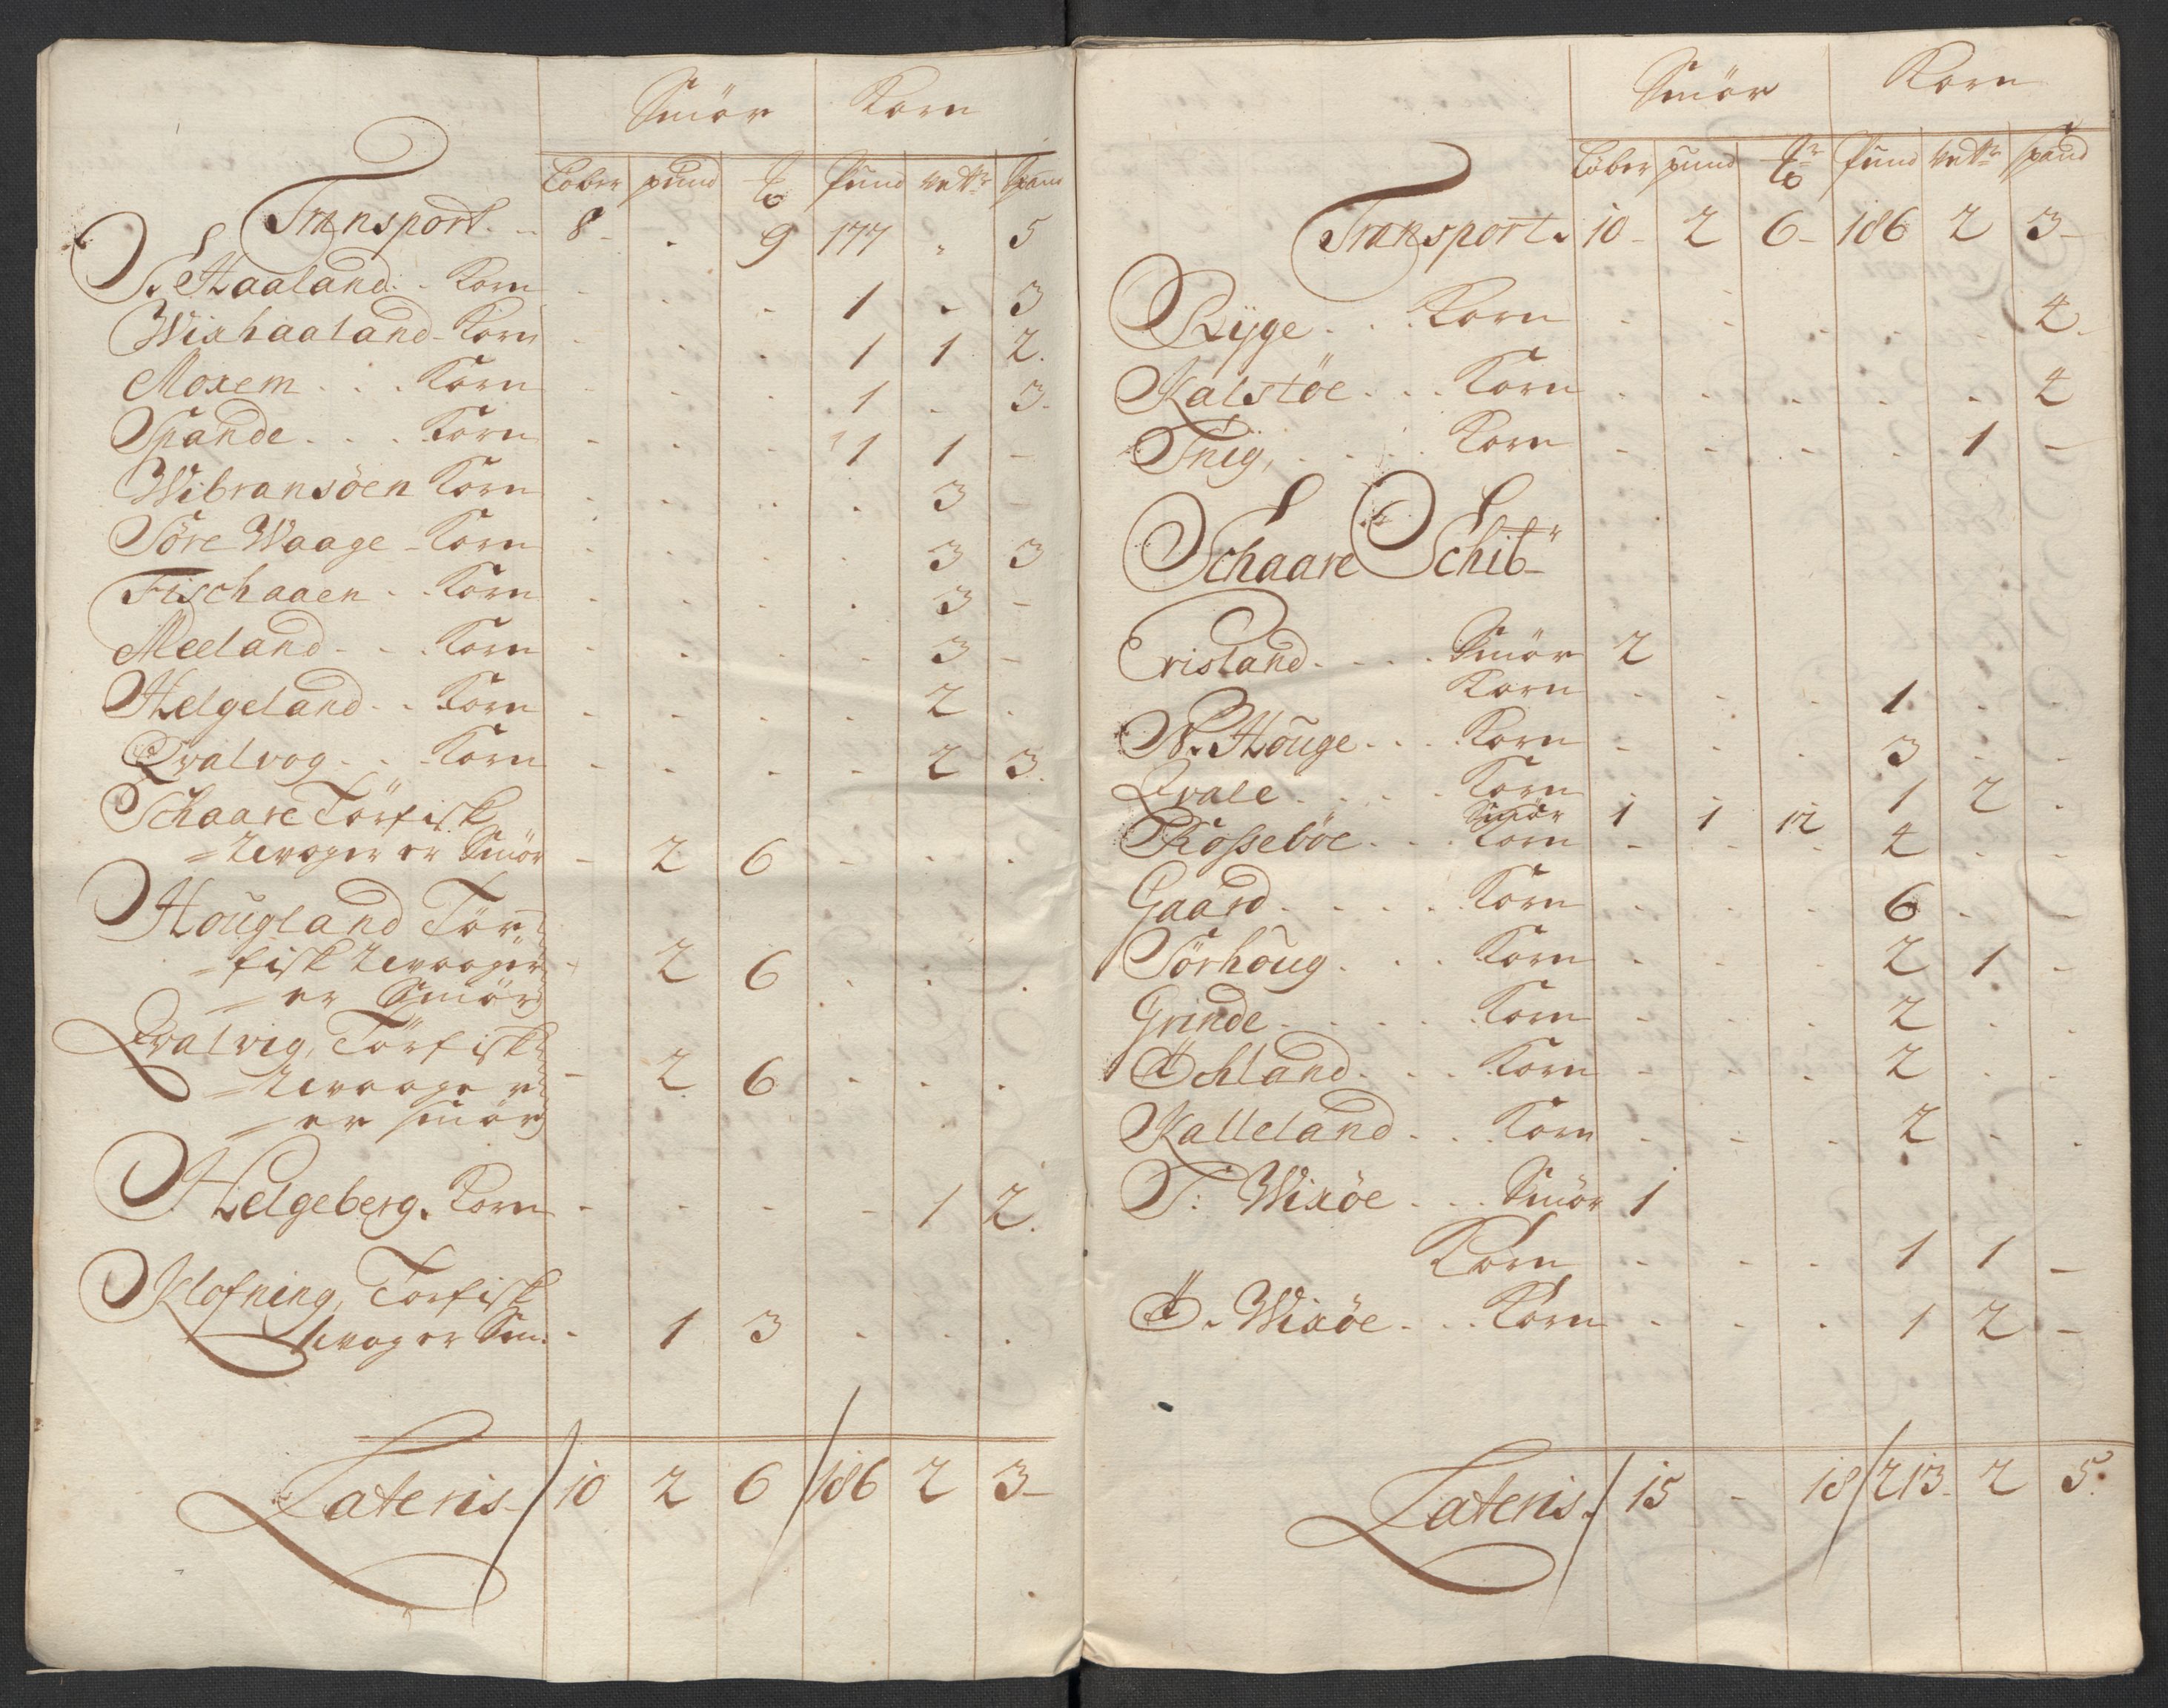 Smör Korn
Löber pund ℔ Pund vettr Spand
Transport. 8 - . 9 177 „ 5
S. Haaland. Korn - . . 1 . 3
Wixhaaland - Korn . . . 1 1 2.
Moxem . . . Korn - . . 1 . 3.
Spande . . . Korn - . . 1 1 -
Wibransöen Korn . . . . 3 -
Söre Waage - Korn . . . . 3 3
Fischaaen . . Korn . . . . 3 -
Meeland . . . Korn . . . . 3 -
Helgeland . . Korn . . . . 2 .
Qvalvog . . . Korn . . . . 2 3.
Schaare Törfisk
= 2 evoger er Smör - 2 6 . . .
Hougland Tör-
= fisk 2 evaager - 2 6 . . .
= er Smör
Qvalvig, Törfisk
= 2 evaager - 2 6 . . .
= er smör
Helgeberg. Korn - . . . 1 2.
Klofning, Torfisk
1 evog er Sm: - 1 3 . . .
Lateris 10 2 6 186 2 3 -
Smör Korn
Löber pund ℔r Pund vettr spand
Transport. 10 - 2 6 - 186 2 3 -
Ryge . . . Korn . . . . . 4.
Kalstöe . . . Korn . . . . . 4
Snig, . . . . Korn . . . . 1 -
Schaare Schib"
Erisland . . . . Smör 2
Korn . . . 1 . .
N. Houge . . . Korn . . . 3 . .
Qvale . . . . Korn . . . 1 2 .
Smör 1 1 12
Rosseböe . . . Korn . . . 4 . .
Gaard . . . . . Korn . . . 6 . -
Sörhoug . . . Korn . . . 2 1 -
Grinde . . . . Korn . . . 2 . .
Öchland . . . Korn . . . 2 . .
Kalleland . . . Korn . . . 2 . .
S: Wixöe . . . Smör 1
Korn . . . 1 1 -
Ö. Wixöe . . . Korn . . . 1 2 -
Lateris. 15 - 18 213 - 2 5.